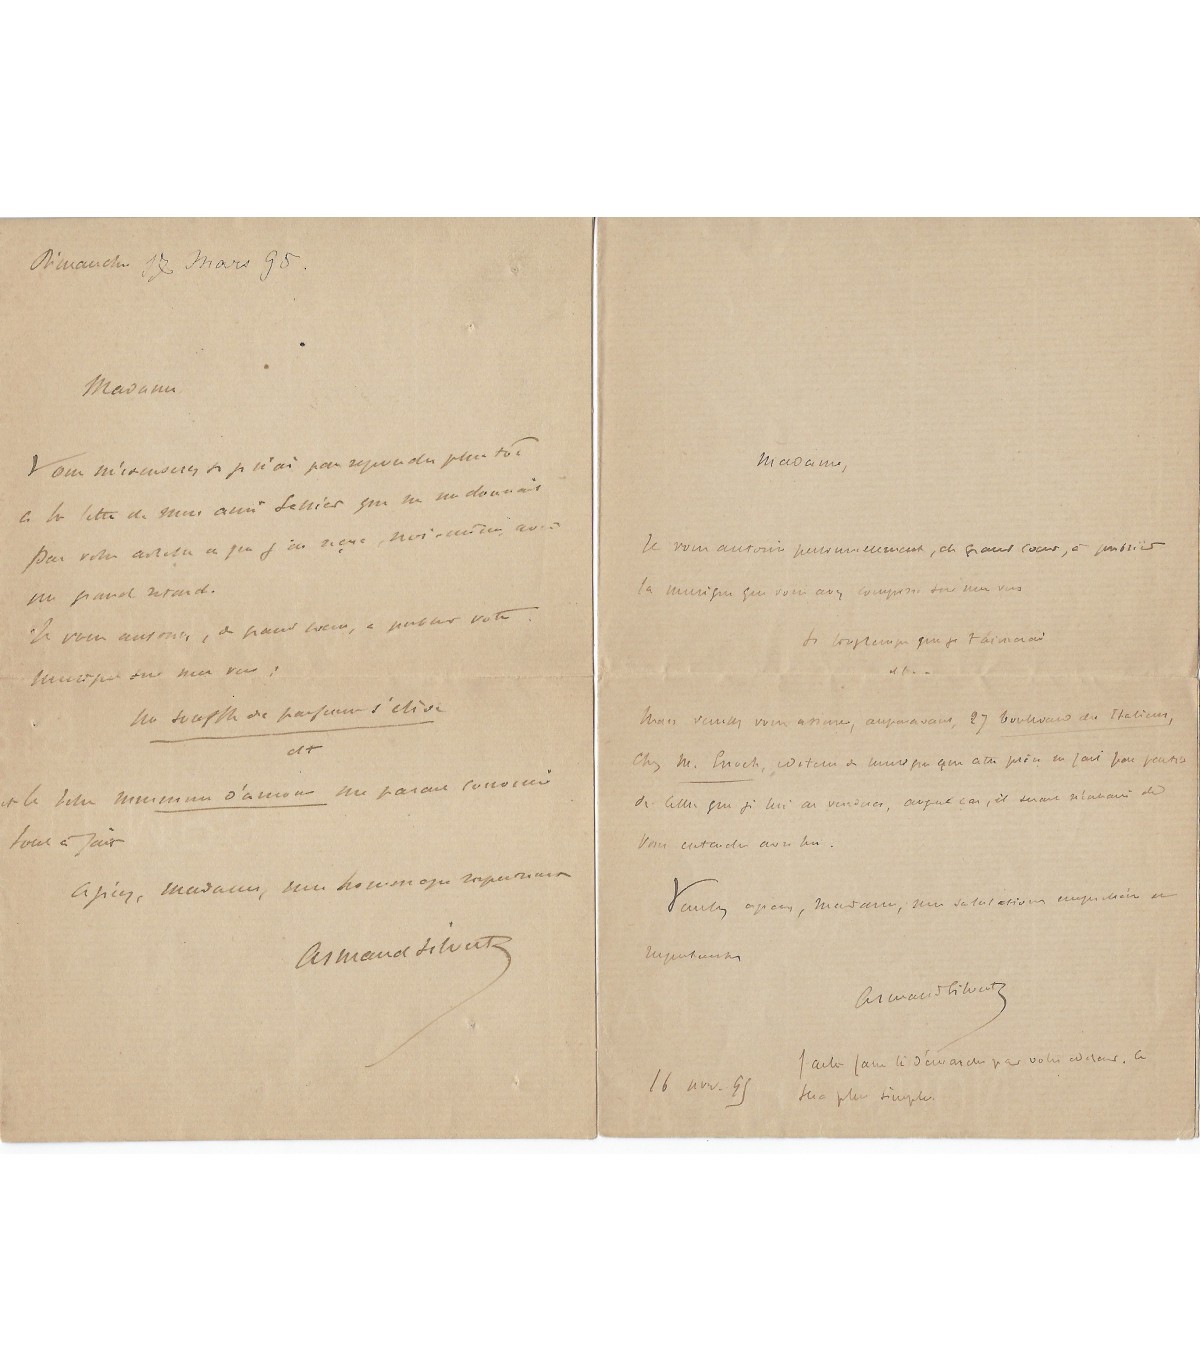 Dimanche 17 Mars 95.
Madame
Vous m'excuserez si je n'ai pas répondu plus tôt
à la lettre de mon ami Sellier que ne me donnait
pas votre adresse et que j'ai reçue, moi-même, avec
un grand retard.
Je vous autorise, de grand coeur, à publier votre
musique sur mes vers :
Un souffle de parfums s'élève
etc
et le titre murmure d'amour me paraît convenir
tout à fait
Agréez, Madame, mon hommage respectueux
Armand Silvestre
Madame,
Je vous autorise personnellement, de grand coeur, à publier
la musique que vous avez composée sur mes vers
Si longtemps que je t'aimerai
etc..
Mais veuillez vous assurer, auparavant, 27 boulevard des Italiens,
chez M. Enoch, éditeur de musique que cette pièce ne fait pas partie
de celles que je lui ai vendues, auquel cas, il serait nécessaire de
vous entendre avec lui.
Veuillez agréer, Madame, mes salutations empressées et
respectueuses
Armand Silvestre
16 nov. 95
Faites faire la démarche par votre éditeur. Ce
sera plus simple.